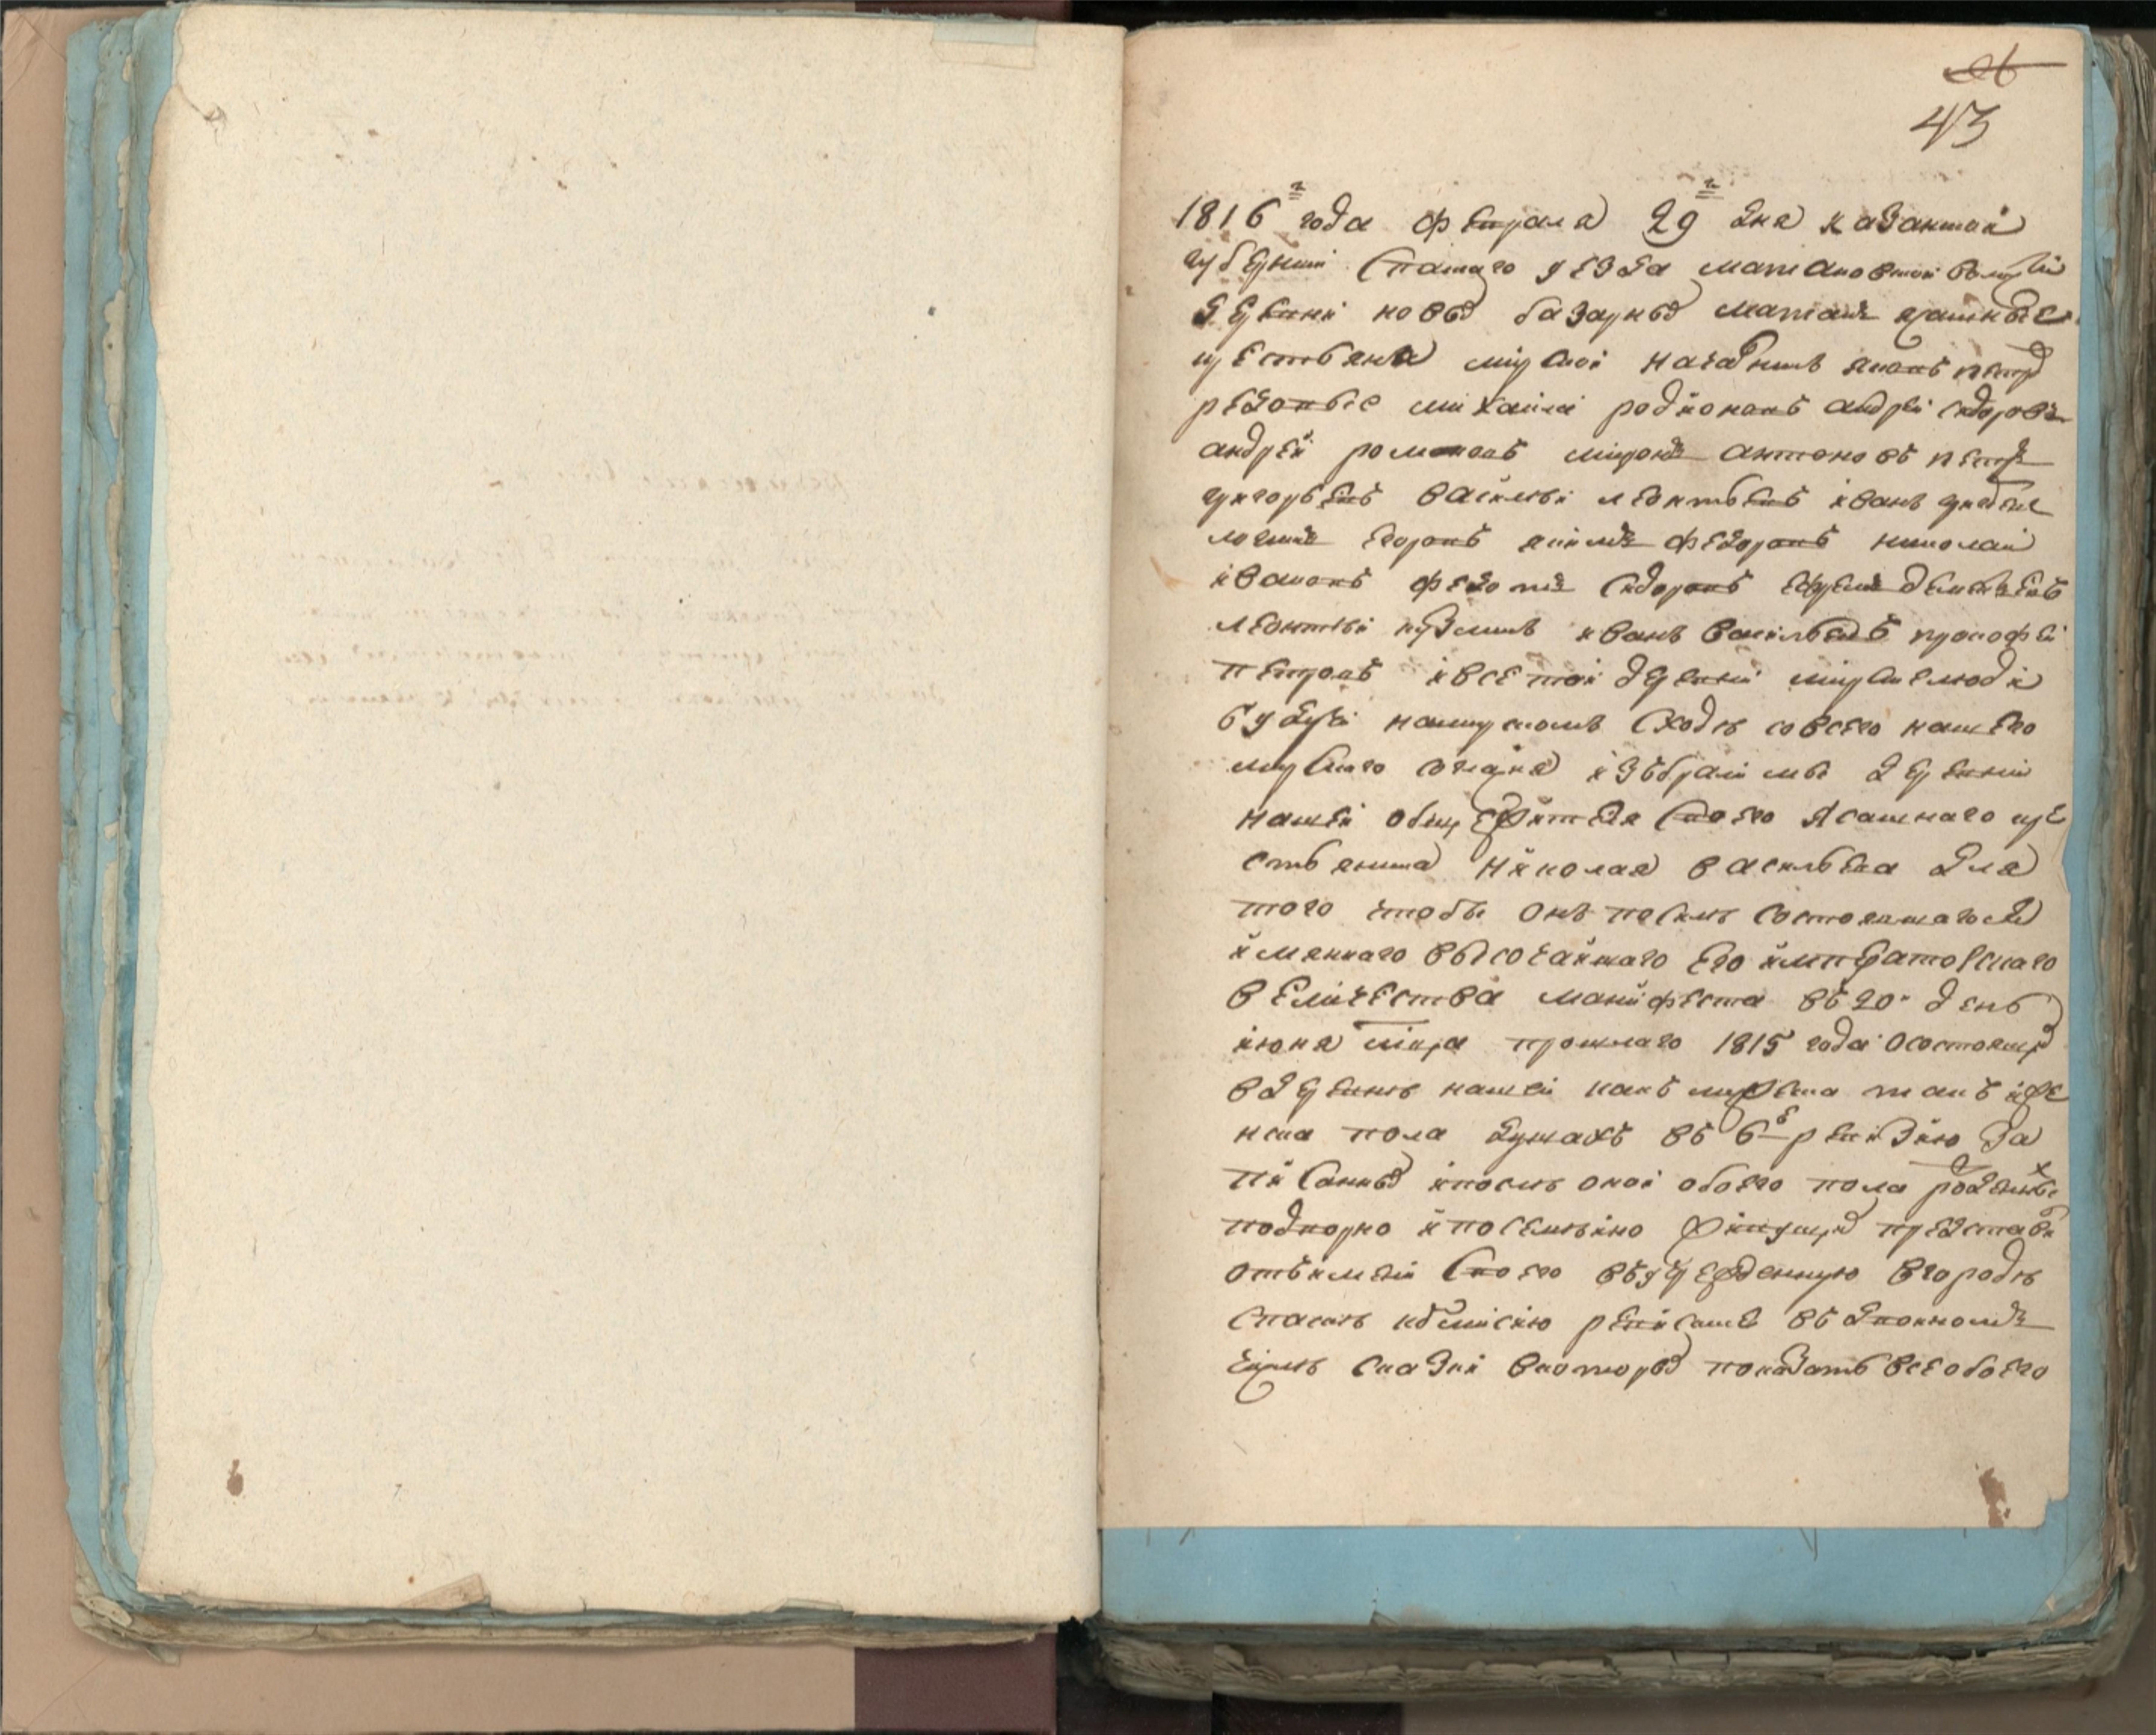 26
43
1816го года февраля 29го дня казанской
губернии спаского уезда матаковской волости
деревни новых базарных матакъ ясашные
крестьяня мирской начальникъ
михаила родионовъ андрей сидоровъ
андрей романовъ миронъ антоновъ петръ
григорьевъ василей леонтьевъ иванъ
логинъ егоровъ якимъ федоровъ николай
ивановъ федотъ сидоровъ ефремъ дементьевъ
леонтей кузминъ иванъ васильевъ прокофей
петровъ и все той деревни мирские люди
будучи на мирскомъ сходе со всего нашего
мирского согласия избрали мы деревни
нашей общежителя своего ясашнаго кре
стьянина николая васильева для
того чтобы онъ по силе состоявшагося
имяннаго высочайшаго его императорскаго
величества манифеста въ 20 день
июня мца прошлаго 1815 года о состоящих
в деревне нашей какъ мужеска такъ и же
нска пола душахъ въ 6ю ревизию за
писанных и после оной обоего пола рожденных
подворно и посемейно живущих представи
отъ имени своего въ учрежденную в городе
спаске комисию ревиские въ двойномъ
сказки в которых показать все обоего